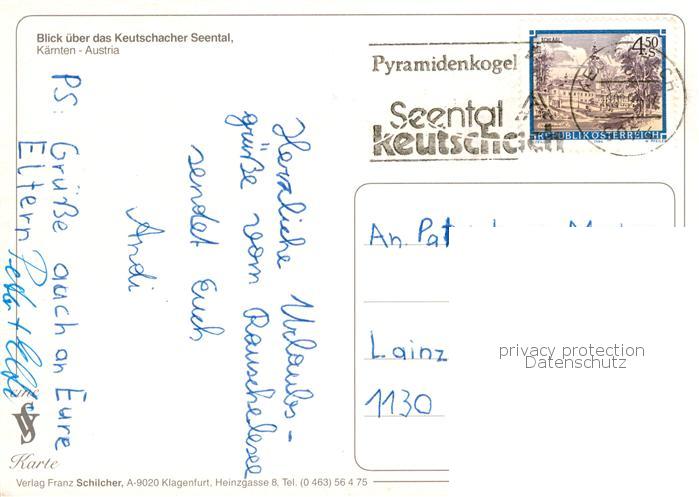 Blick über das Keutschacher Seental,
Kärnten - Austria
Pyramidenkogel
Seental
keutschach
4.50
S
REPUBLIK ÖSTERREICH
Herzliche Urlaubs-
grüße vom Rauschelesee
sendet Euch
Andi
PS: Grüße auch an Eure
Eltern
An Pat
Lainz
1130
privacy protection
Datenschutz
eine
Karte
Verlag Franz Schilcher, A-9020 Klagenfurt, Heinzgasse 8, Tel. (0 463) 56 4 75